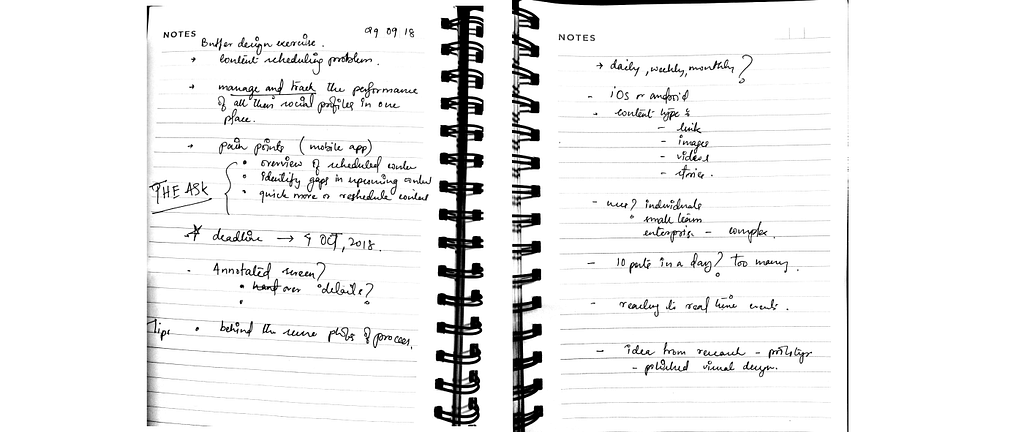 NOTES
09 09 18
Buffer design exercise.
→ content scheduling problem.
→ manage and track the performance
of all their social profiles in one
place.
→ pain points (mobile app)
• overview of scheduled content
• identify gaps in upcoming content
• quick move or reshedule content
THE ASK
* deadline → 4 OCT, 2018.
- Annotated screen?
• hand over "details?
•
Tips • behind the scene photos of process.
NOTES
→ daily, weekly, monthly?
- iOS or android
- content types
- link
- images
- videos
- stories.
- user? individuals
• small teams
enterprise - complex.
- 10 posts in a day? too many.
- reacting to real time events.
- idea from research - prototype
- polished visual design.